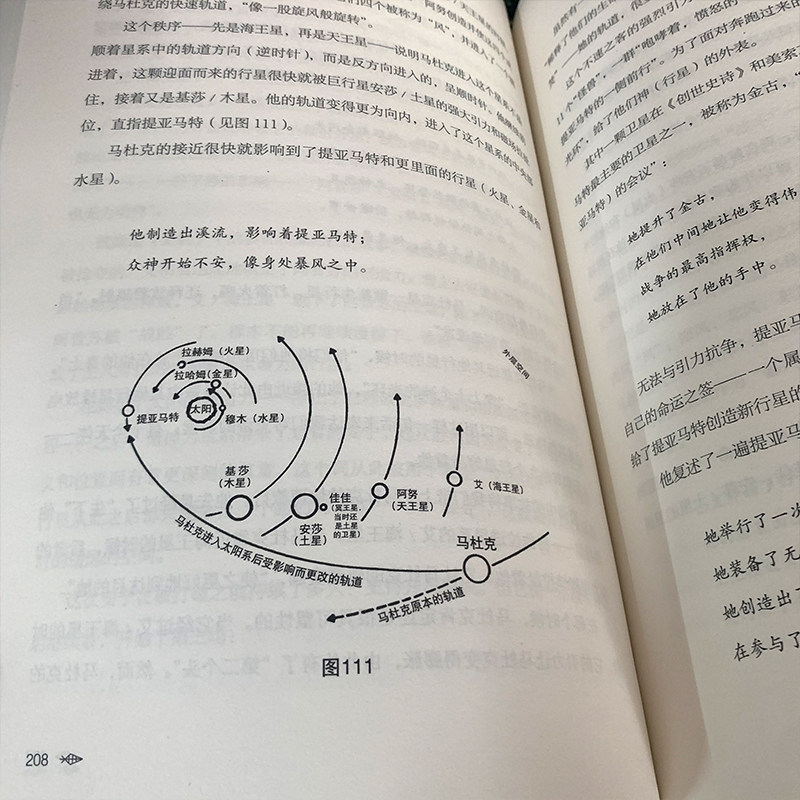 绕马杜克的快速轨道，“像一股旋风般旋转”。
这个秩序——先是海王星，再是天王星——说明马杜克进入这个星系不是
顺着星系中的轨道方向（逆时针），而是反方向进入的，呈顺时针。
进着，这颗迎面而来的行星很快就被巨行星安莎/土星的强大引力和磁场抓
住，接着又是基莎/木星。他的轨道变得更为向内，进入了这个星系的中央
位，直指提亚马特（见图111）。
马杜克的接近很快就影响到了提亚马特和更里面的行星（火星、金星和
水星）。
他制造出溪流，影响着提亚马特；
众神开始不安，像身处暴风之中。
外层空间
拉赫姆（火星）
拉哈姆（金星）
太阳
提亚马特
穆木（水星）
基莎
（木星）
安莎
（土星）
佳佳
（冥王星，
当时还
是土星
的卫星）
阿努
（天王星）
艾（海王星）
马杜克
马杜克进入太阳系后受影响而更改的轨道
马杜克原本的轨道
图111
208
虽然有
“稀释了他们的生命
这个不速之客的强烈引力
笑”——她的轨道，很
11个“怪兽”，一群“咆哮着，愤怒的
提亚马特的一侧前行”。为了面对奔跑过来的
光环”，给了他们神（行星）的外表。
其中一颗卫星在《创世史诗》和美索
马特最主要的卫星之一，被称为金古，“
亚马特）的会议”：
她提升了金古，
在他们中间她让他变得伟
战争的最高指挥权，
她放在了他的手中。
无法与引力抗争，提亚马
自己的命运之签——一个属
给了提亚马特创造新行星的
他复述了一遍提亚马
她举行了一次
她装备了无
她创造出
在参与了